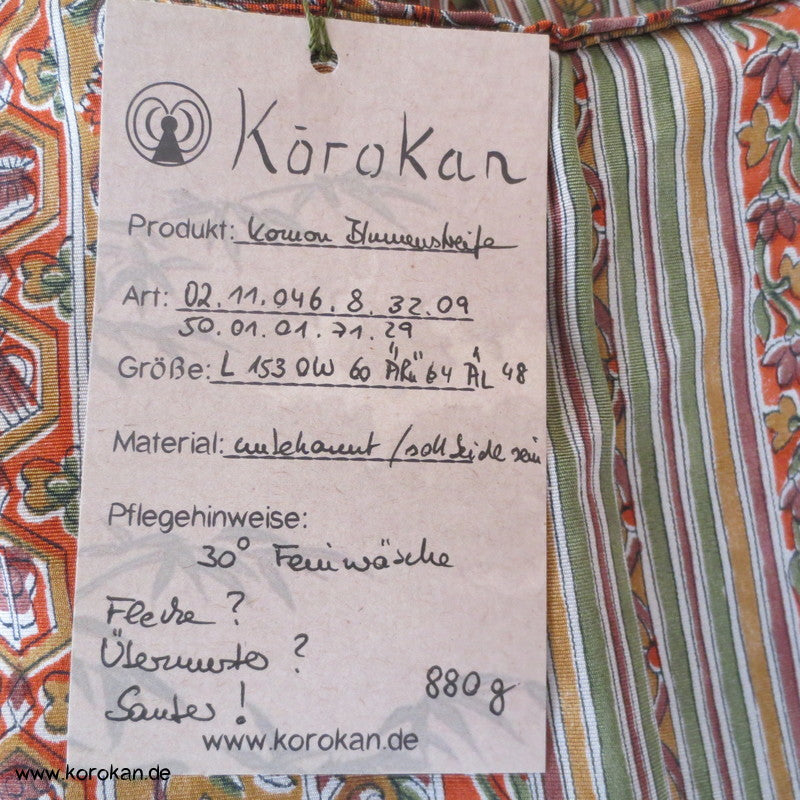 Kōrokan
Produkt: Komon Blumenstreife
Art: 02.11.046.8.32.09
50.01.01.71.29
Größe: L 153 OW 60 ÄRü 64 ÄL 48
Material: unbekannt / soll Seide sein
Pflegehinweise:
30° Feinwäsche
Flecke ?
?
Sauber !
880 g
www.korokan.de
www.korokan.de